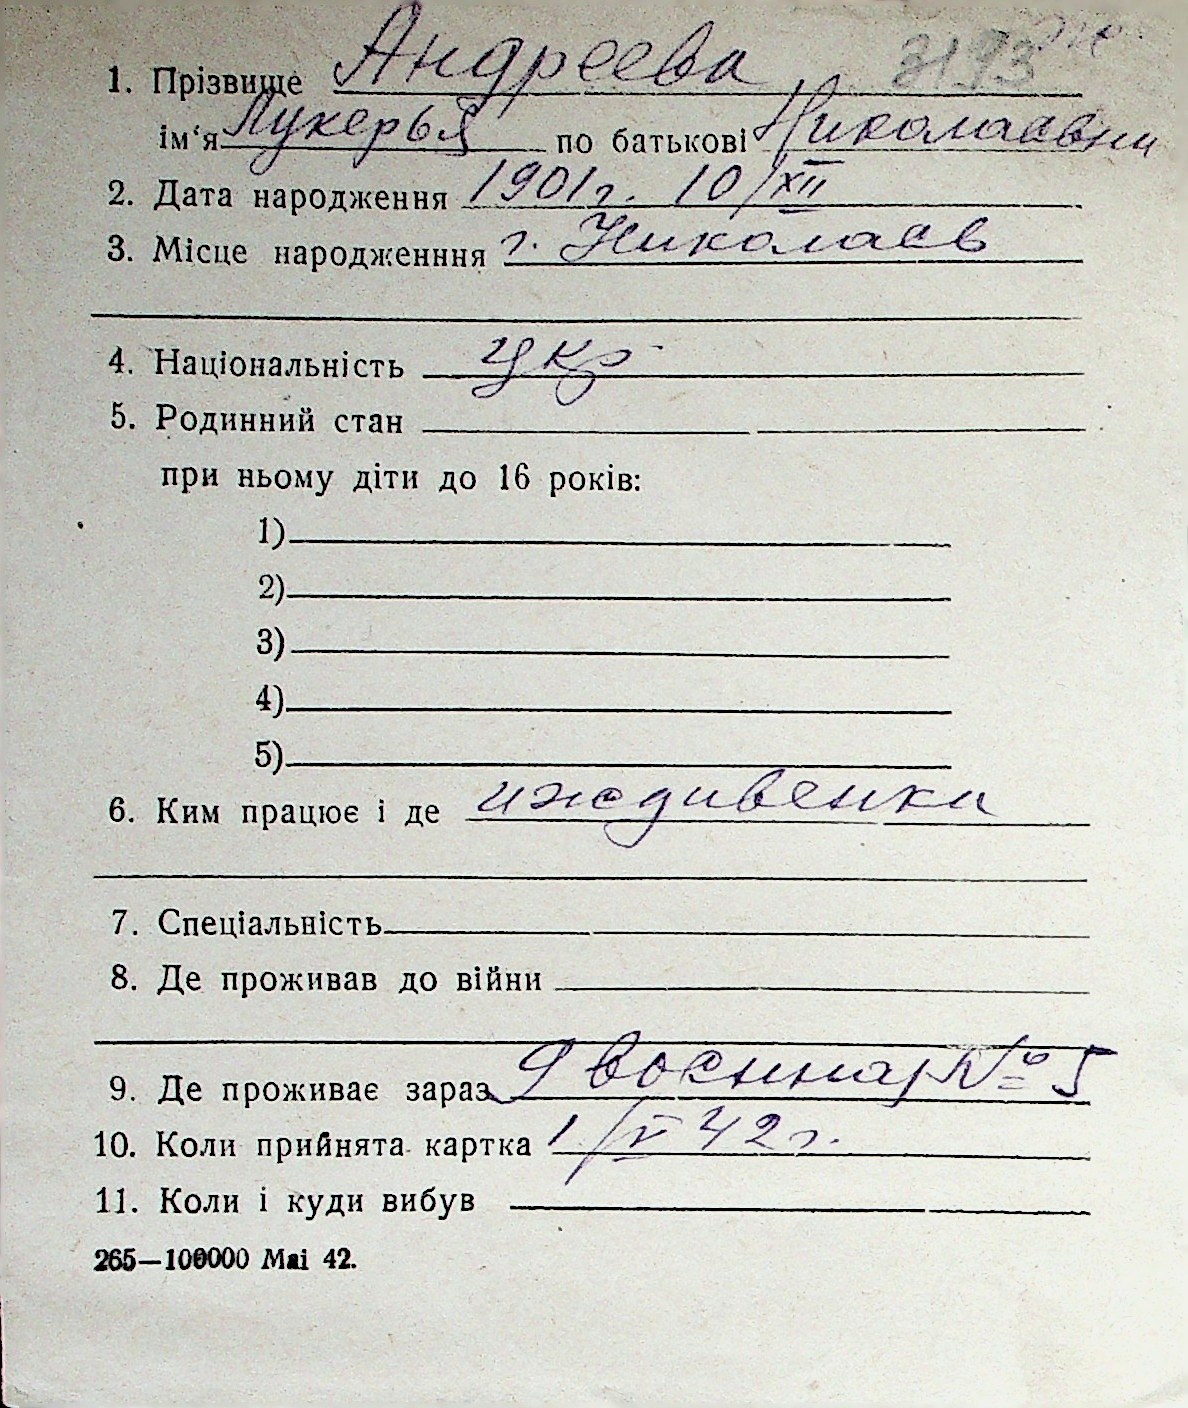 1. Прізвище Андреева 3193
ім'я Лукерья по батькові Николаевна
2. Дата народження 1901г. 10/XII
3. Місце народженння г. Николаев
4. Національність укр
5. Родинний стан
при ньому діти до 16 років:
1)
2)
3)
4)
5)
6. Ким працює і де иждивенка
7. Спеціальність
8. Де проживав до війни
9. Де проживає зараз 9 военная № 5
10. Коли прийнята картка 1/V 42 г.
11. Коли і куди вибув
265—100000 Mai 42.